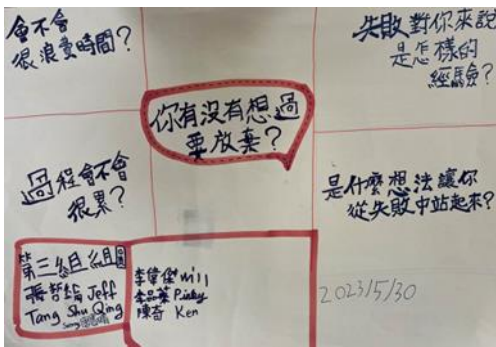 會不會
很浪費時間?
失敗對你來說
是怎樣的
經驗?
你有沒有想過
要放棄?
過程會不會
很累?
是什麼想法讓你
從失敗中站起來?
第三組 組
Jeff
Tang Shu Qing
李偉傑 Will
李品葉 Pinky
陳奇 Ken
2023/5/30